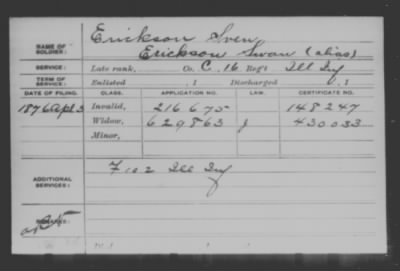 Erickson Sven
NAME OF SOLDIER: Erickson Swan (alias)
SERVICE: Late rank, Co. C, 16 Reg't Ill Inf
TERM OF SERVICE: Enlisted , 1 Discharged , 1
DATE OF FILING. CLASS. APPLICATION NO. LAW. CERTIFICATE NO.
1876 Apl 3 Invalid, 216675 148247
Widow, 629863 J 430033
Minor,
ADDITIONAL SERVICES: F 102 Ill Inf
REMARKS: